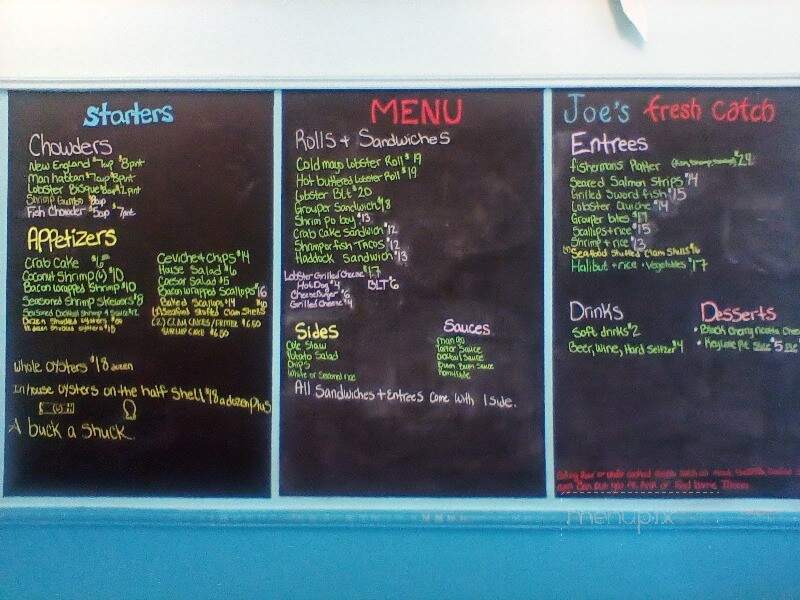 Starters
Chowders
New England $7cup $8pnt
Manhattan $7cup $8pnt
Lobster Bisque $8cup $12pnt
Shrimp Gumbo $8cup
Fish Chowder $5cup $7pnt
Appetizers
Crab Cake $6
Coconut Shrimp (6) $10
Bacon wrapped Shrimp $10
Seasoned Shrimp Skewers $8
Seasoned Cocktail Shrimp + Sauce $12
Dozen Smoked oysters
Ceviche + Chips $14
House Salad $6
Caesar Salad $5
Bacon wrapped Scallops $16
Baked Scallops $14
Seafood Stuffed Clam Shells $10
(2) Clam Cakes/Fritter $6.50
Shrimp Cake $6.50
Whole oysters $18 dozen
In house oysters on the half shell $18 a dozen plus
A buck a Shuck
MENU
Rolls + Sandwiches
Cold mayo Lobster Roll $19
Hot buttered Lobster Roll $19
Lobster BLT $20
Grouper Sandwich $18
Shrim Po boy $13
Crab Cake Sandwich $12
Shrimp or fish Tacos $12
Haddock Sandwich $13
Lobster Grilled Cheese $17
Hot Dog $4
BLT $6
Cheeseburger $6
Grilled Cheese $4
Sides
Cole Slaw
Potato Salad
Chips
White or Seasoned rice
Sauces
Tartar Sauce
Cocktail Sauce
Sauce
All Sandwiches + Entrees Come with 1 side.
Joe's fresh catch
Entrees
fishermans Platter $24
Seared Salmon Strips $14
Grilled Sword fish $15
Lobster Quiche $14
Grouper bites $17
Scallups + rice $15
Shrimp + rice $13
Seafood Stuffed Clam Shells $16
Halibut + rice + Vegetables $17
Drinks
Soft drinks $2
Beer, Wine, Hard Seltzer $4
Desserts
• Black Cherry ricotta
• Keylime Pie Slice $5
menupix